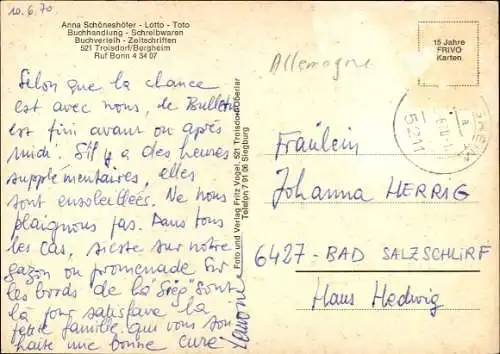 10.6.70
Anna Schöneshöfer - Lotto - Toto
Buchhandlung - Schreibwaren
Buchverleih - Zeitschriften
521 Troisdorf/Bergheim
Ruf Bonn 4 34 07
15 Jahre
FRIVO
Karten
Allemagne
5211
Selon que la chance
est avec nous, le Bulletin
est fini avant ou après
midi. S'il y a des heures
supplémentaires, elles
sont ensoleillées. Ne nous
plaignons pas. Dans tous
les cas, sieste sur notre
gazon ou promenade sur
les bords de la "Sieg" sont
là pour satisfaire la
petite famille qui vous sou
haite une bonne cure
Foto und Verlag Fritz Vogel, 521 Troisdorf-Oberlar
Telefon 7 91 06 Siegburg
Fräulein
Johanna HERRIG
6427 - BAD SALZSCHLIRF
Haus Hedwig